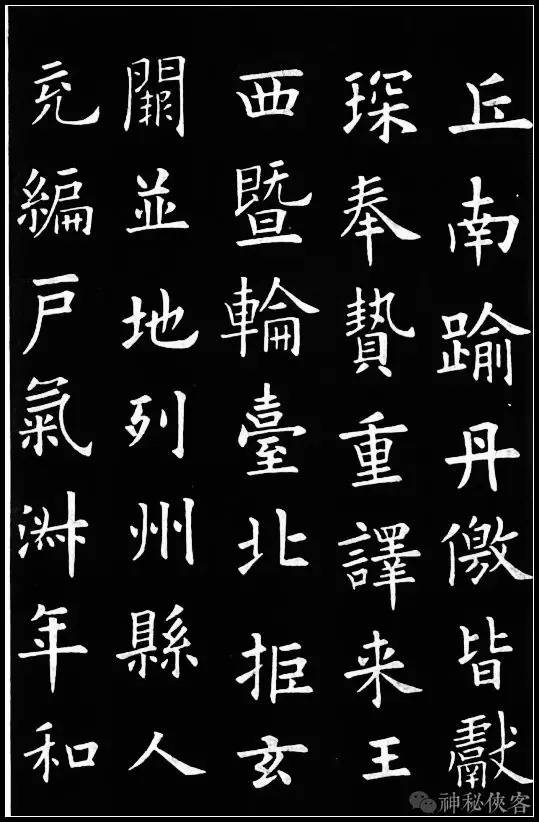 丘南踰丹儌皆獻
琛奉贄重譯来王
西暨輪臺北拒玄
闕並地列州縣人
充編戶氣淋年和
神秘俠客